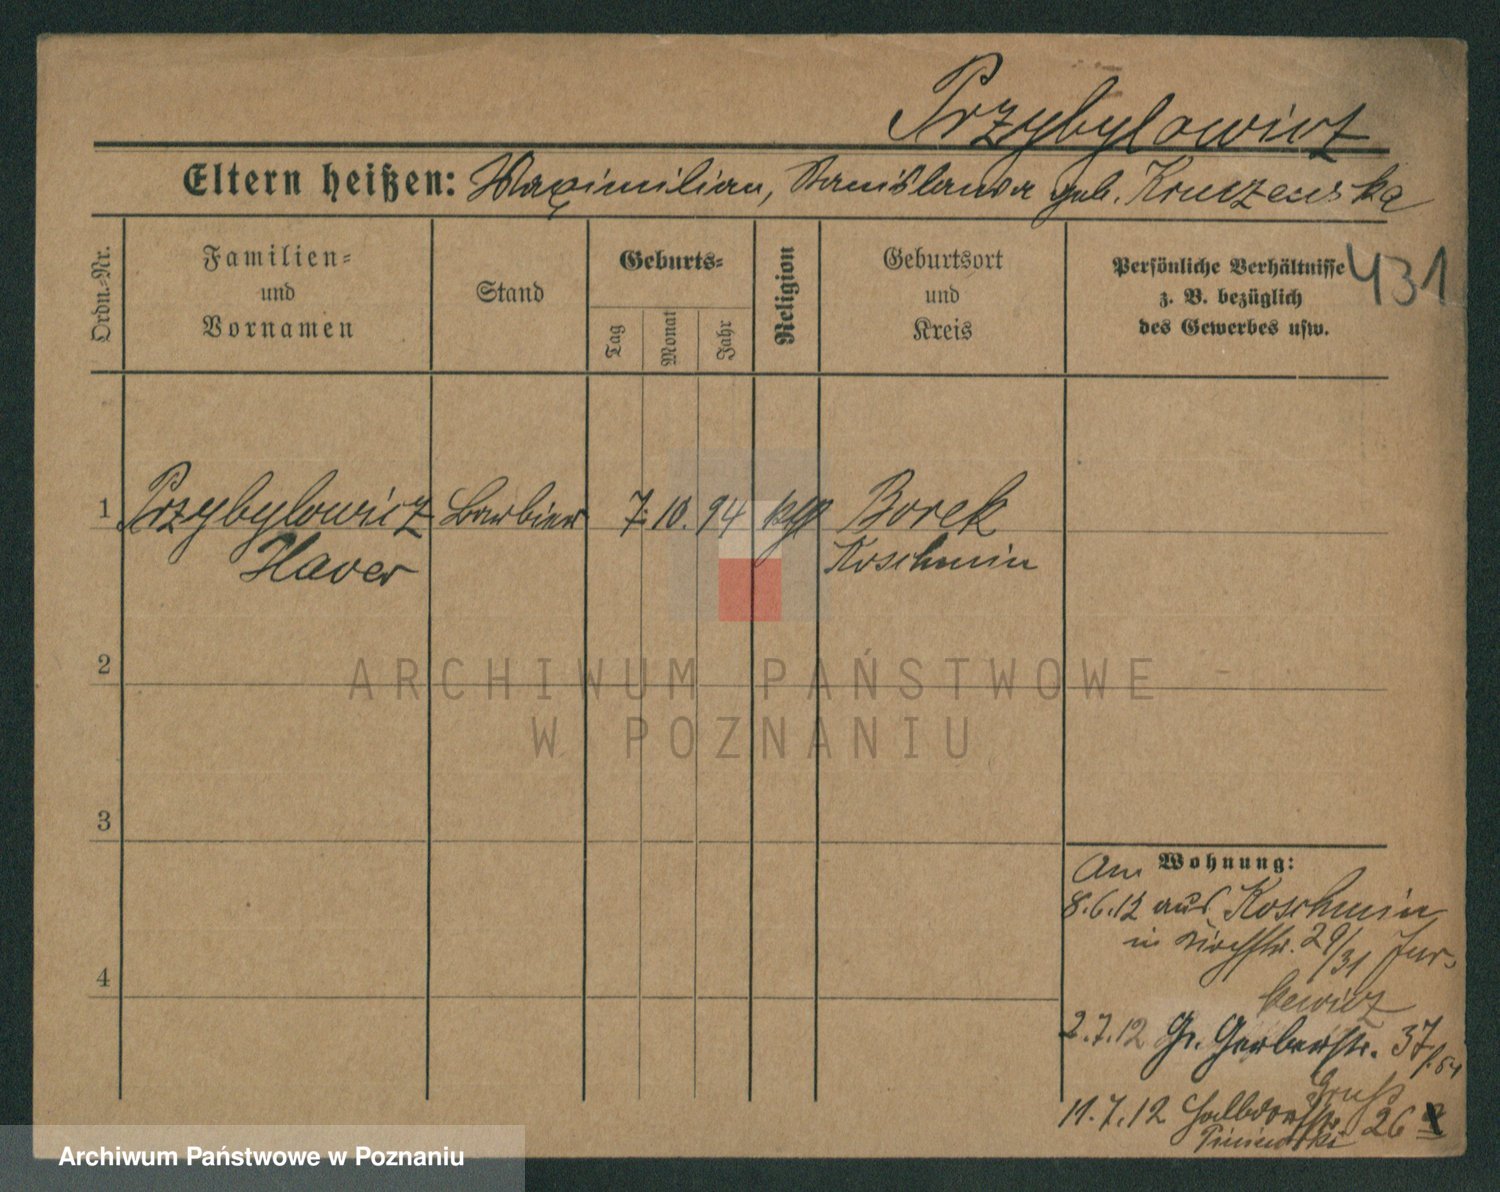 Przybylowicz
Eltern heißen: Maximilian, Stanislawa geb. Kruszewska
431
Ordn.-Nr.
Familien-
und
Vornamen
Stand
Geburts-
Tag
Monat
Jahr
Religion
Geburtsort
und
Kreis
Persönliche Verhältnisse
z. B. bezüglich
des Gewerbes usw.
1 Przybylowicz Barbier 7. 10. 94 Borek
Xaver Koschmin
2
3
4
Wohnung:
Am
8.6.12 aus Koschmin
in Kirchstr. 29/31 Jur-
kewicz
2.7.12 Gr. Gerberstr. 37
11.7.12 Halbdorfstr. 26
ARCHIWUM PAŃSTWOWE
W POZNANIU
Archiwum Państwowe w Poznaniu